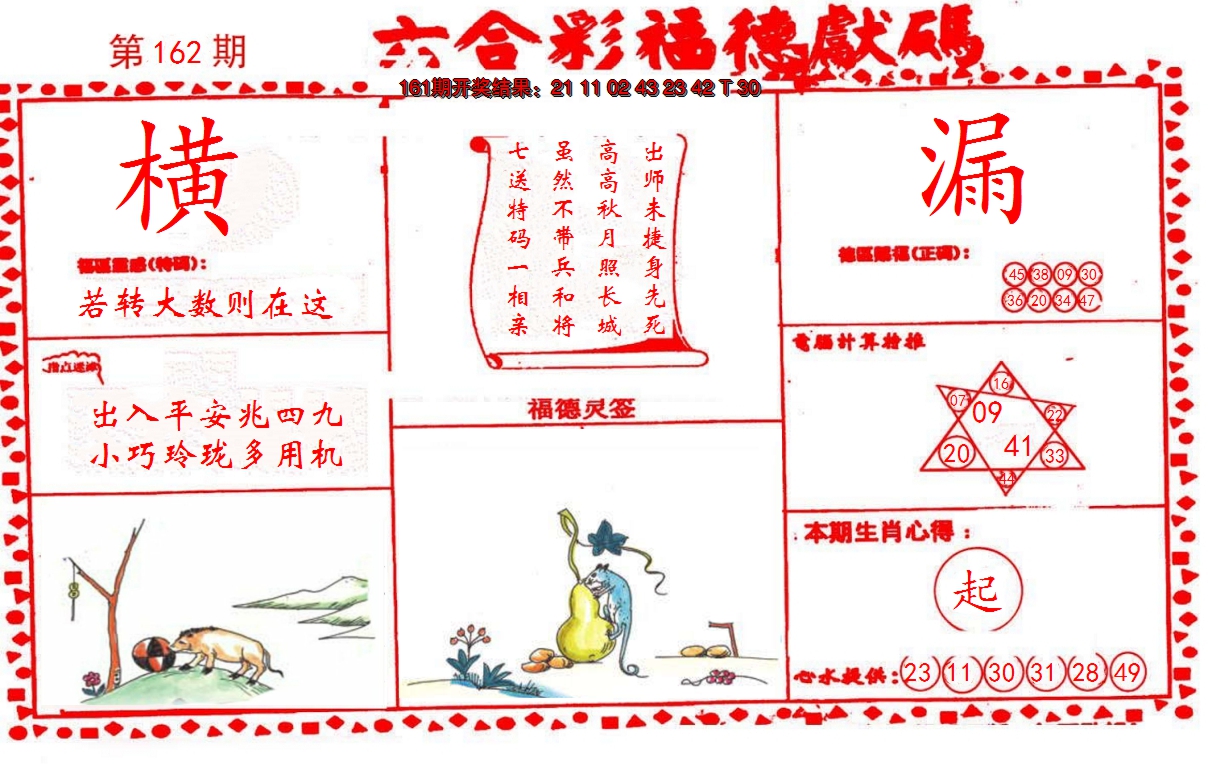 第162期
六合彩福德獻碼
161期开奖结果：21 11 02 43 23 42 T 30
横
福區靈感(特碼)：
若转大数则在这
指点迷津
出入平安兆四九
小巧玲珑多用机
出师未捷身先死
高高秋月照长城
虽然不带兵和将
七送特码一相亲
福德灵签
漏
德區賜福(正碼)：
45 38 09 30
36 20 34 47
電腦計算特推
16
07 09 22
20 41 33
44
本期生肖心得：
起
心水提供：23 11 30 31 28 49